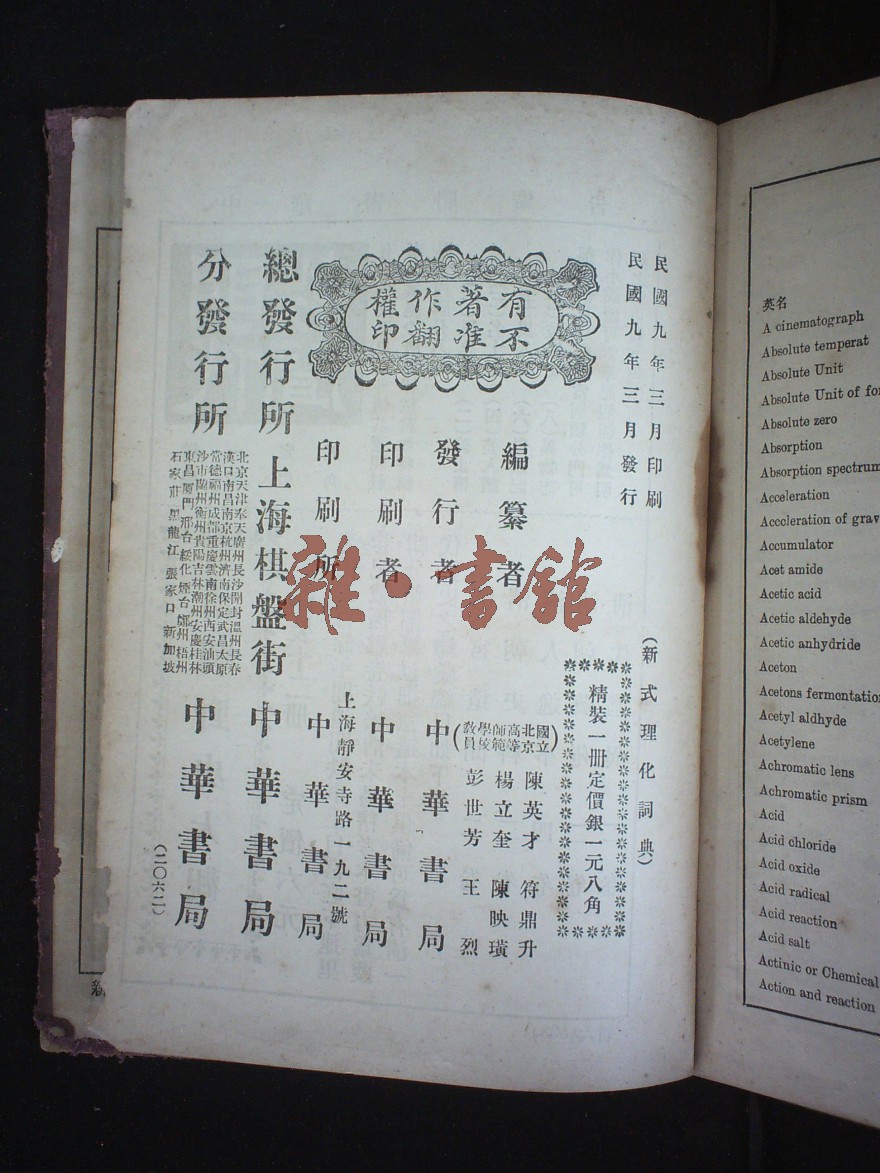 民國九年三月印刷
民國九年三月發行
(新式理化詞典)
精裝一冊定價銀一元八角
有不
著准
作翻
權印
編纂者
(國立北京高等師範學校教員)
陳英才 符鼎升
楊立奎 陳映璜
彭世芳 王烈
發行者 中華書局
印刷者 中華書局
印刷所 上海靜安寺路一九二號
中華書局
總發行所 上海棋盤街 中華書局
分發行所
北京天津奉天廣州長沙開封溫州長春
漢口南昌南京杭州濟南保定武昌太原
常德福州成都重慶雲南徐州西安汕頭
沙市蘭州衡州貴陽吉林潮州安慶桂林
東昌廈門邢台綏化煙台鄭州梧州
石家莊 黑龍江 張家口 新加坡
中華書局
(二〇六二)
雜·書館
英名
A cinematograph
Absolute temperat
Absolute Unit
Absolute Unit of fo
Absolute zero
Absorption
Absorption spectrum
Acceleration
Acccleration of grav
Accumulator
Acet amide
Acetic acid
Acetic aldehyde
Acetic anhydride
Aceton
Acetons fermentatio
Acetyl aldhyde
Acetylene
Achromatic lens
Achromatic prism
Acid
Acid chloride
Acid oxide
Acid radical
Acid reaction
Acid salt
Actinic or Chemical
Action and reaction